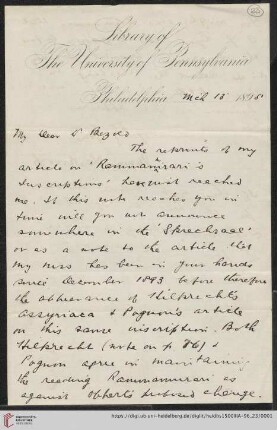 Library of
The University of Pennsylvania
Philadelphia Mch 15 1895
My Dear Dr Bezold
The reprints of my
article on 'Rammannirari's
Inscriptions' have just reached
me. If this note reaches you in
time will you not announce
somewhere in the 'Sprechsaal'
or as a note to the article that
my mss has been in your hands
since December 1893 before therefore
the appearance of Hilprecht's
Assyriaca & Pognon's article
on this same inscription. Both
Hilprecht (note on p 86) &
Pognon agree in maintaining
the reading Rammannirari as
against Oppert's proposed change.
https://digi.ub.uni-heidelberg.de/diglit/heidhs1501IIIA-96_23/0001